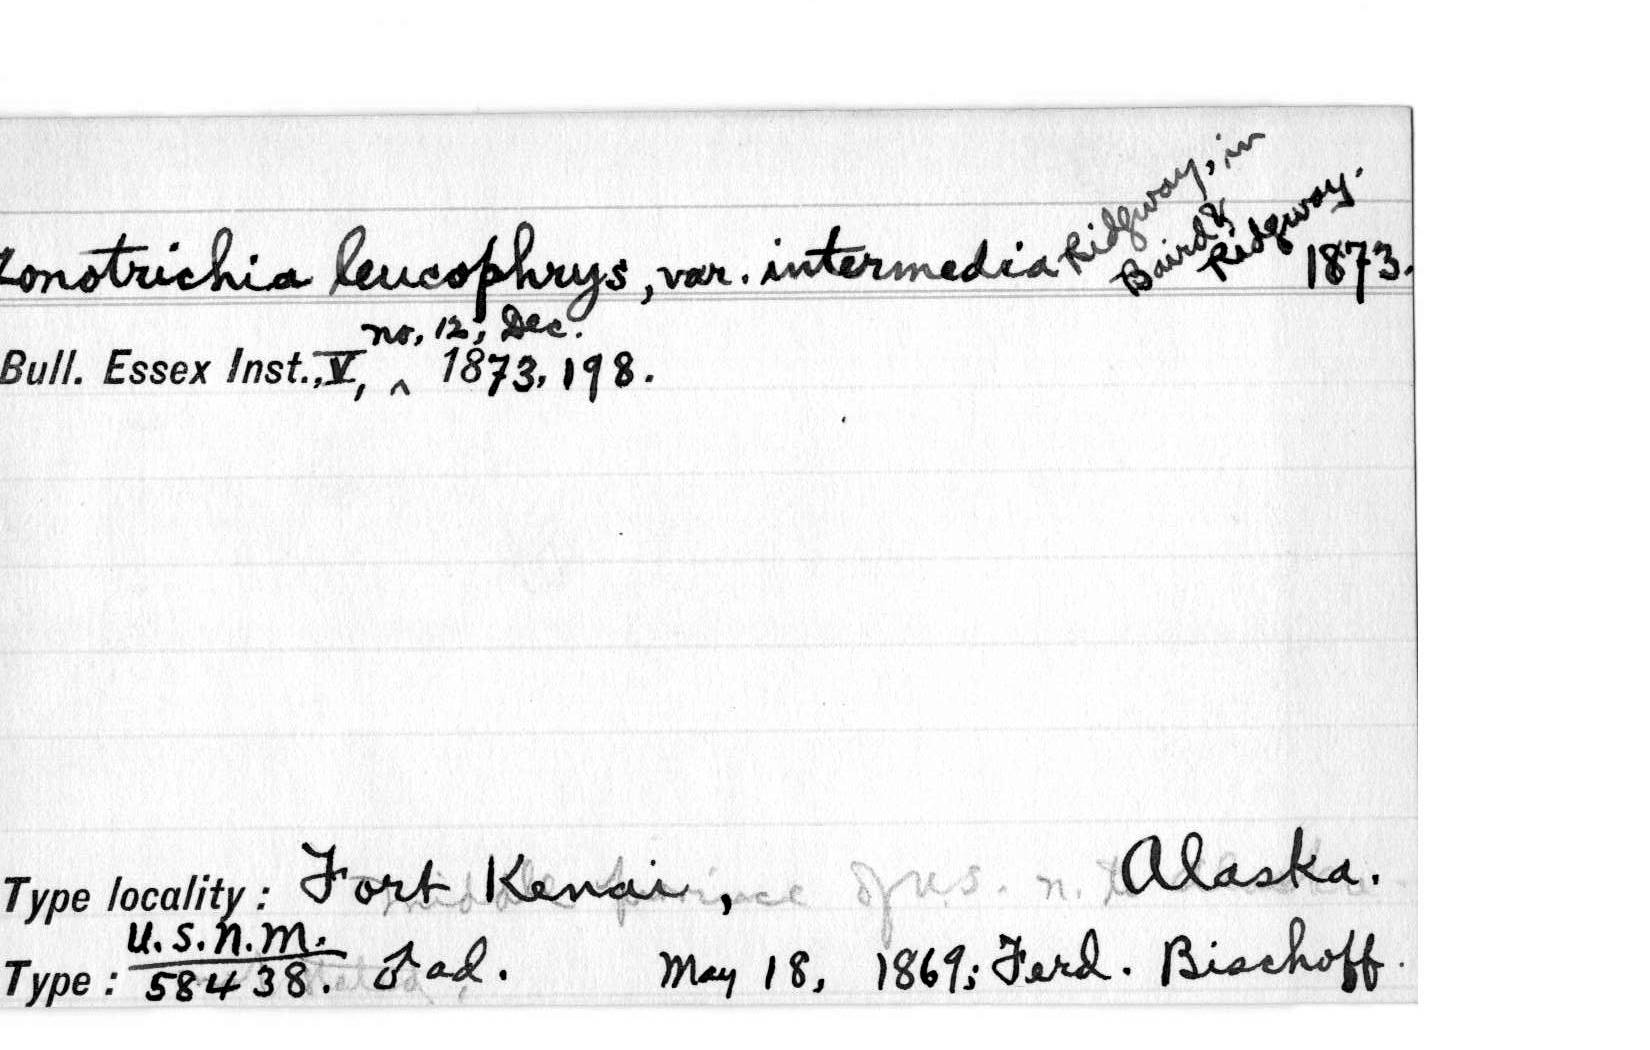 Zonotrichia leucophrys, var. intermedia Ridgway, in Baird & Ridgway. 1873.
no. 12, Dec.
Bull. Essex Inst., V, ^ 1873, 198.
Type locality: Fort Kenai, Alaska.
U.S.N.M.
Type: 58438. ♂ ad. May 18, 1869; Ferd. Bischoff.